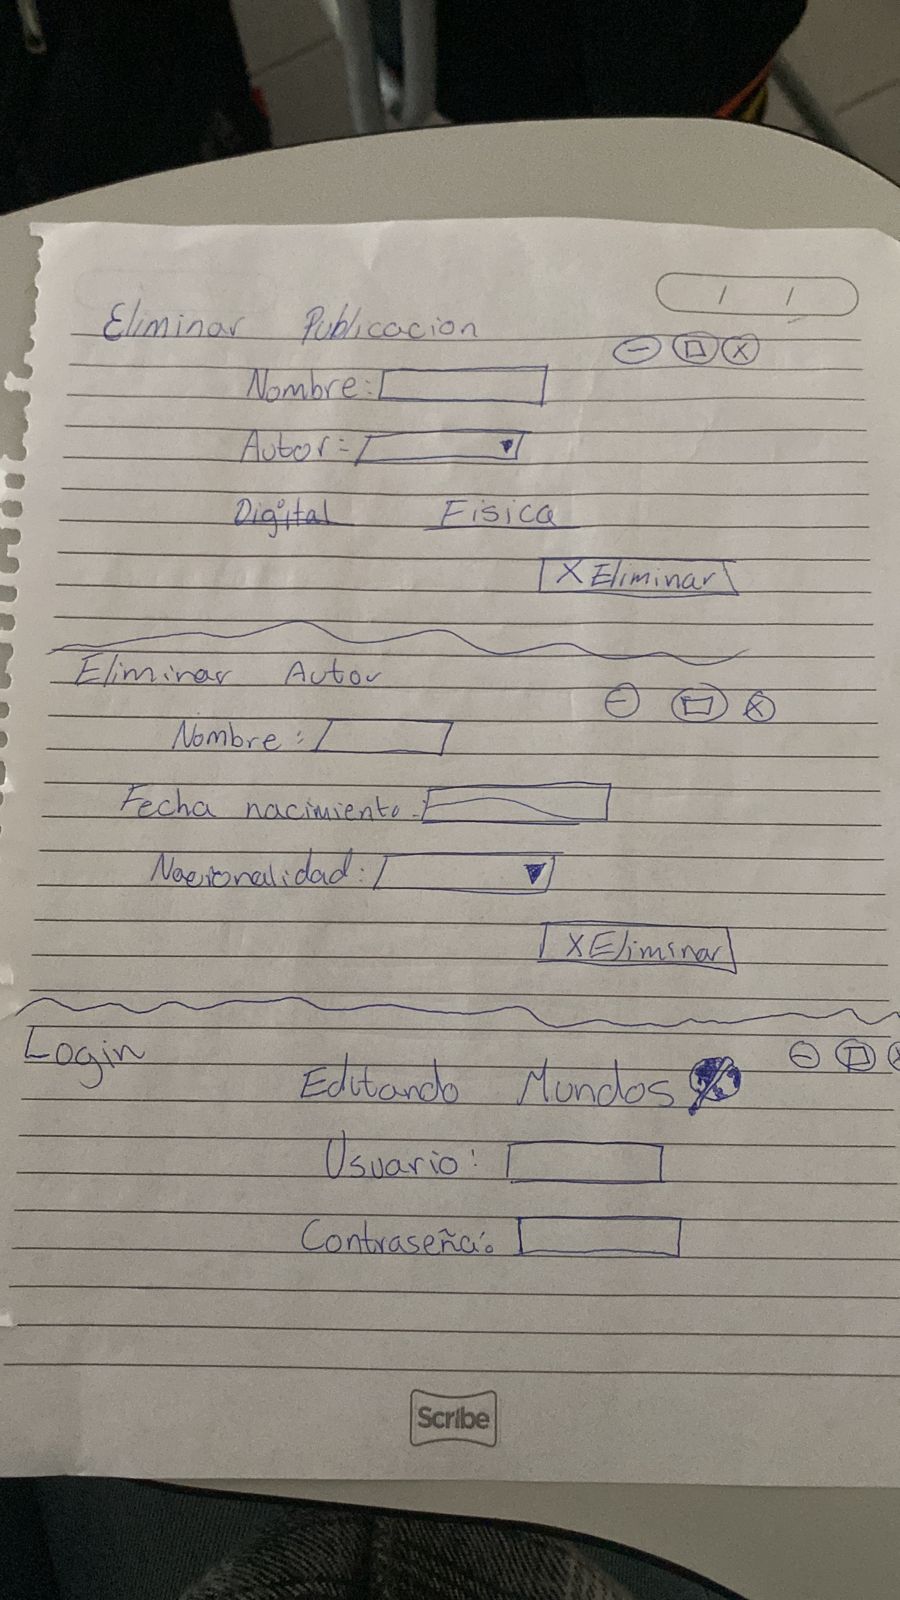 Eliminar Publicacion
Nombre:
Autor:
Digital Fisica
X Eliminar
Eliminar Autor
Nombre:
Fecha nacimiento:
Nacionalidad:
X Eliminar
Login
Editando Mundos
Usuario:
Contraseña:
Scribe